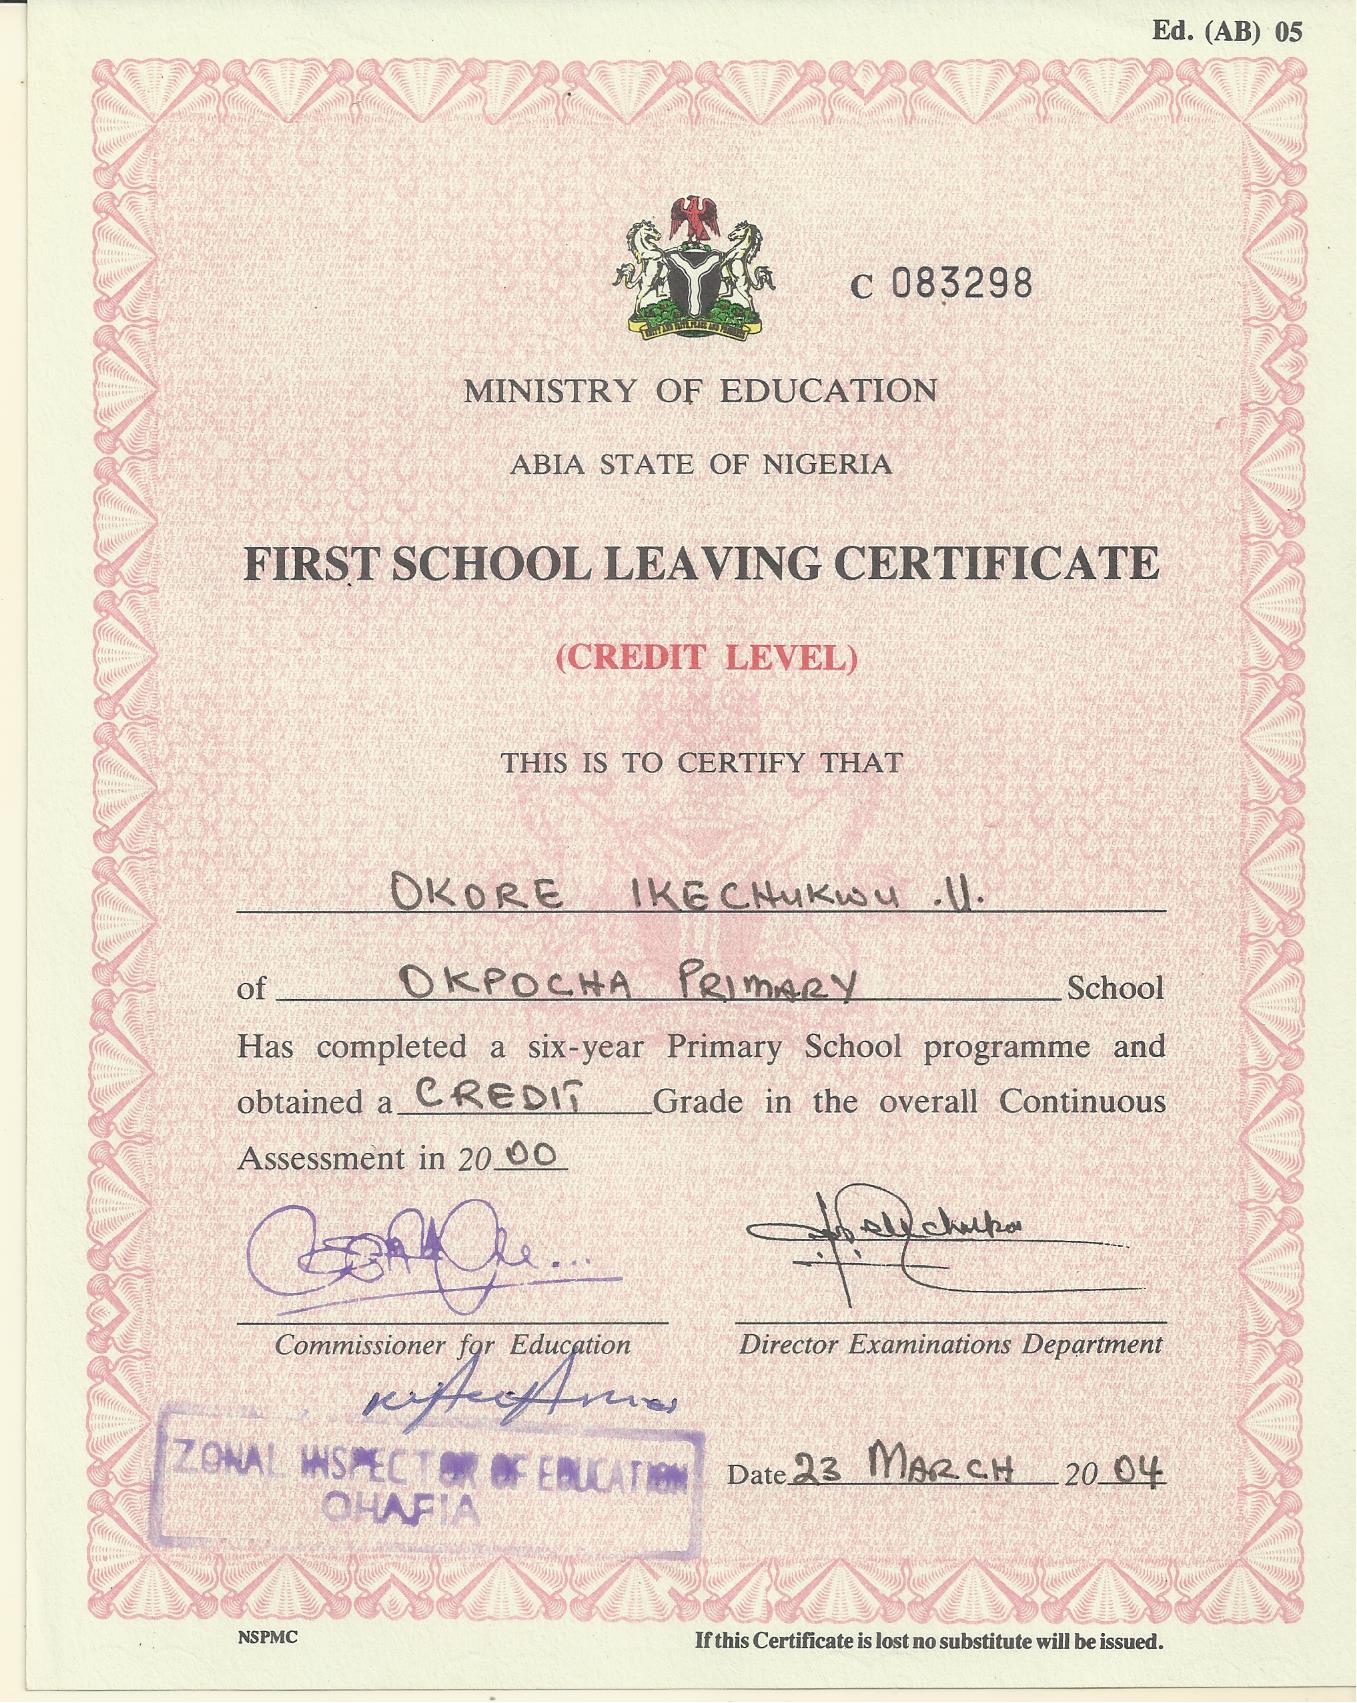 Ed. (AB) 05
C 083298
MINISTRY OF EDUCATION
ABIA STATE OF NIGERIA
FIRST SCHOOL LEAVING CERTIFICATE
(CREDIT LEVEL)
THIS IS TO CERTIFY THAT
OKORE IKECHUKWU .U.
of OKPOCHA PRIMARY School
Has completed a six-year Primary School programme and
obtained a CREDIT Grade in the overall Continuous
Assessment in 2000
Commissioner for Education Director Examinations Department
ZONAL INSPECTOR OF EDUCATION
OHAFIA
Date 23 MARCH 2004
NSPMC If this Certificate is lost no substitute will be issued.